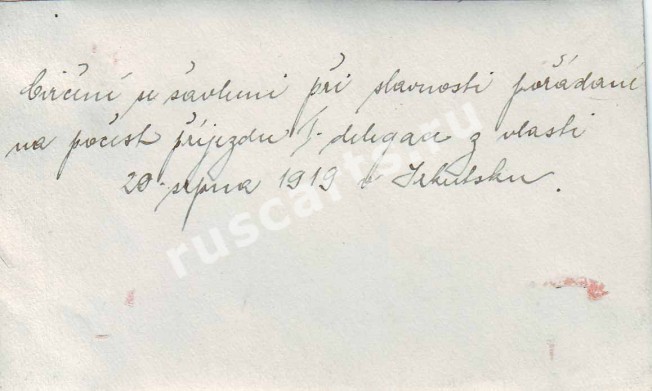 Cvičení se šavlemi při slavnosti pořádané
na počest příjezdu I. delegace z vlasti
20. srpna 1919 v Irkutsku.
ruscarts.ru